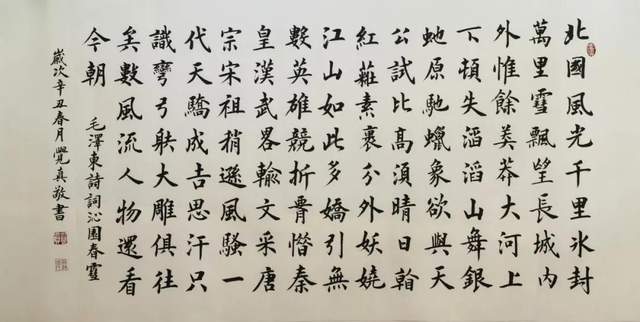 北國風光千里氷封
萬里雪飄望長城内
外惟餘莽莽大河上
下頓失滔滔山舞銀
蛇原馳蠟象欲與天
公試比高須晴日看
紅裝素裹分外妖嬈
江山如此多嬌引無
數英雄競折腰惜秦
皇漢武畧輸文采唐
宗宋祖稍遜風騷一
代天驕成吉思汗只
識彎弓射大雕俱往
矣數風流人物還看
今朝
毛澤東詩詞沁園春雪
歲次辛丑春月覺真敬書